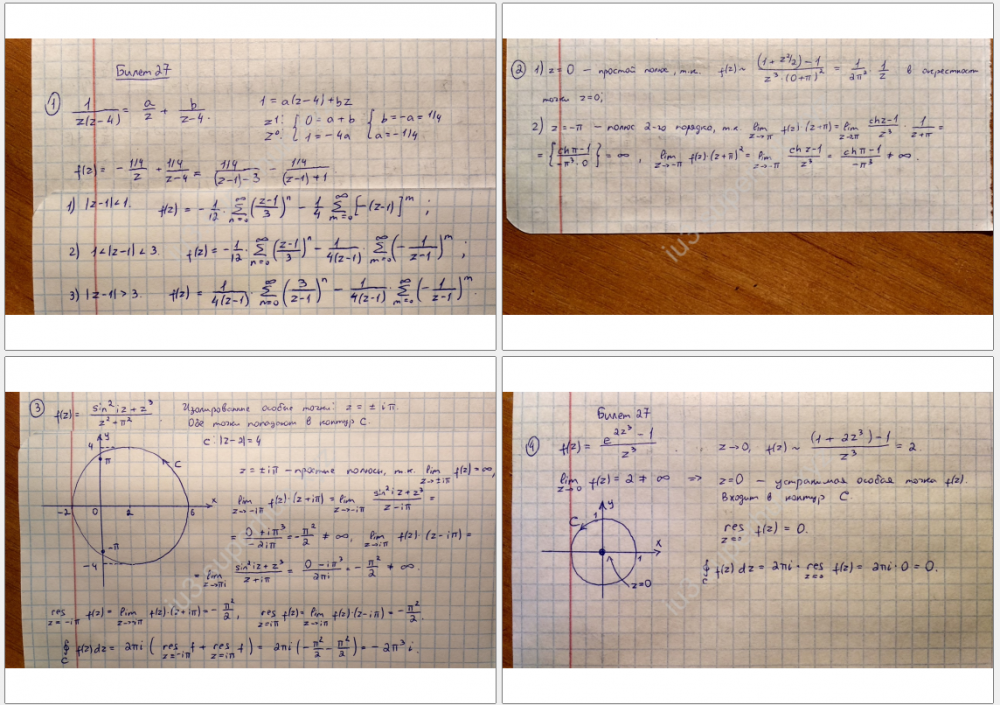 Билет 27
① 1/(z(z-4)) = a/z + b/(z-4). 1 = a(z-4) + bz
z¹: { 0 = a + b { b = -a = 1/4
z⁰: { 1 = -4a { a = -1/4
f(z) = - (1/4)/z + (1/4)/(z-4) = (1/4)/((z-1)-3) - (1/4)/((z-1)+1)
1) |z-1|<1. f(z) = - 1/12 · ∑_{n=0}^∞ ((z-1)/3)^n - 1/4 ∑_{m=0}^∞ [-(z-1)]^m ;
2) 1<|z-1|<3. f(z) = - 1/12 · ∑_{n=0}^∞ ((z-1)/3)^n - 1/(4(z-1)) · ∑_{m=0}^∞ (- 1/(z-1))^m ;
3) |z-1|>3. f(z) = 1/(4(z-1)) · ∑_{n=0}^∞ (3/(z-1))^n - 1/(4(z-1)) · ∑_{m=0}^∞ (- 1/(z-1))^m.
② 1) z=0 – простой полюс, т.к. f(z) ~ ((1+z²/2)-1)/(z³·(0+π)²) = 1/(2π²) · 1/z в окрестности
точки z=0;
2) z=-π – полюс 2-го порядка, т.к. lim_{z→-π} f(z)·(z+π) = lim_{z→-π} (ch z-1)/z³ · 1/(z+π) =
= { (ch π-1)/(-π³·0) } = ∞ , lim_{z→-π} f(z)·(z+π)² = lim_{z→-π} (ch z-1)/z³ = (ch π-1)/(-π³) ≠ ∞.
③ f(z) = (sin² iz + z³)/(z²+π²) Изолированные особые точки: z = ± iπ.
Обе точки попадают в контур C.
C: |z-2|=4
y
4
π
C
-2
0
2
6
x
-π
-4
z = ±iπ – простые полюсы, т.к. lim_{z→±iπ} f(z) = ∞,
lim_{z→-iπ} f(z)·(z+iπ) = lim_{z→-iπ} (sin² iz + z³)/(z-iπ) =
= (0+iπ³)/(-2iπ) = - π²/2 ≠ ∞, lim_{z→iπ} f(z)·(z-iπ) =
= lim_{z→πi} (sin² iz + z³)/(z+iπ) = (0-iπ³)/(2πi) = - π²/2 ≠ ∞.
res_{z=-iπ} f(z) = lim_{z→-iπ} f(z)·(z+iπ) = - π²/2, res_{z=iπ} f(z) = lim_{z→iπ} f(z)·(z-iπ) = - π²/2.
∮_C f(z)dz = 2πi ( res_{z=-iπ} f + res_{z=iπ} f ) = 2πi (- π²/2 - π²/2) = -2π³i.
Билет 27
④ f(z) = (e^{2z³}-1)/z³ , z→0, f(z) ~ ((1+2z³)-1)/z³ = 2.
lim_{z→0} f(z) = 2 ≠ ∞ => z=0 – устранимая особая точка f(z).
Входит в контур C.
C
1
y
x
1
z=0
res_{z=0} f(z) = 0.
∮_C f(z) dz = 2πi · res_{z=0} f(z) = 2πi · 0 = 0.